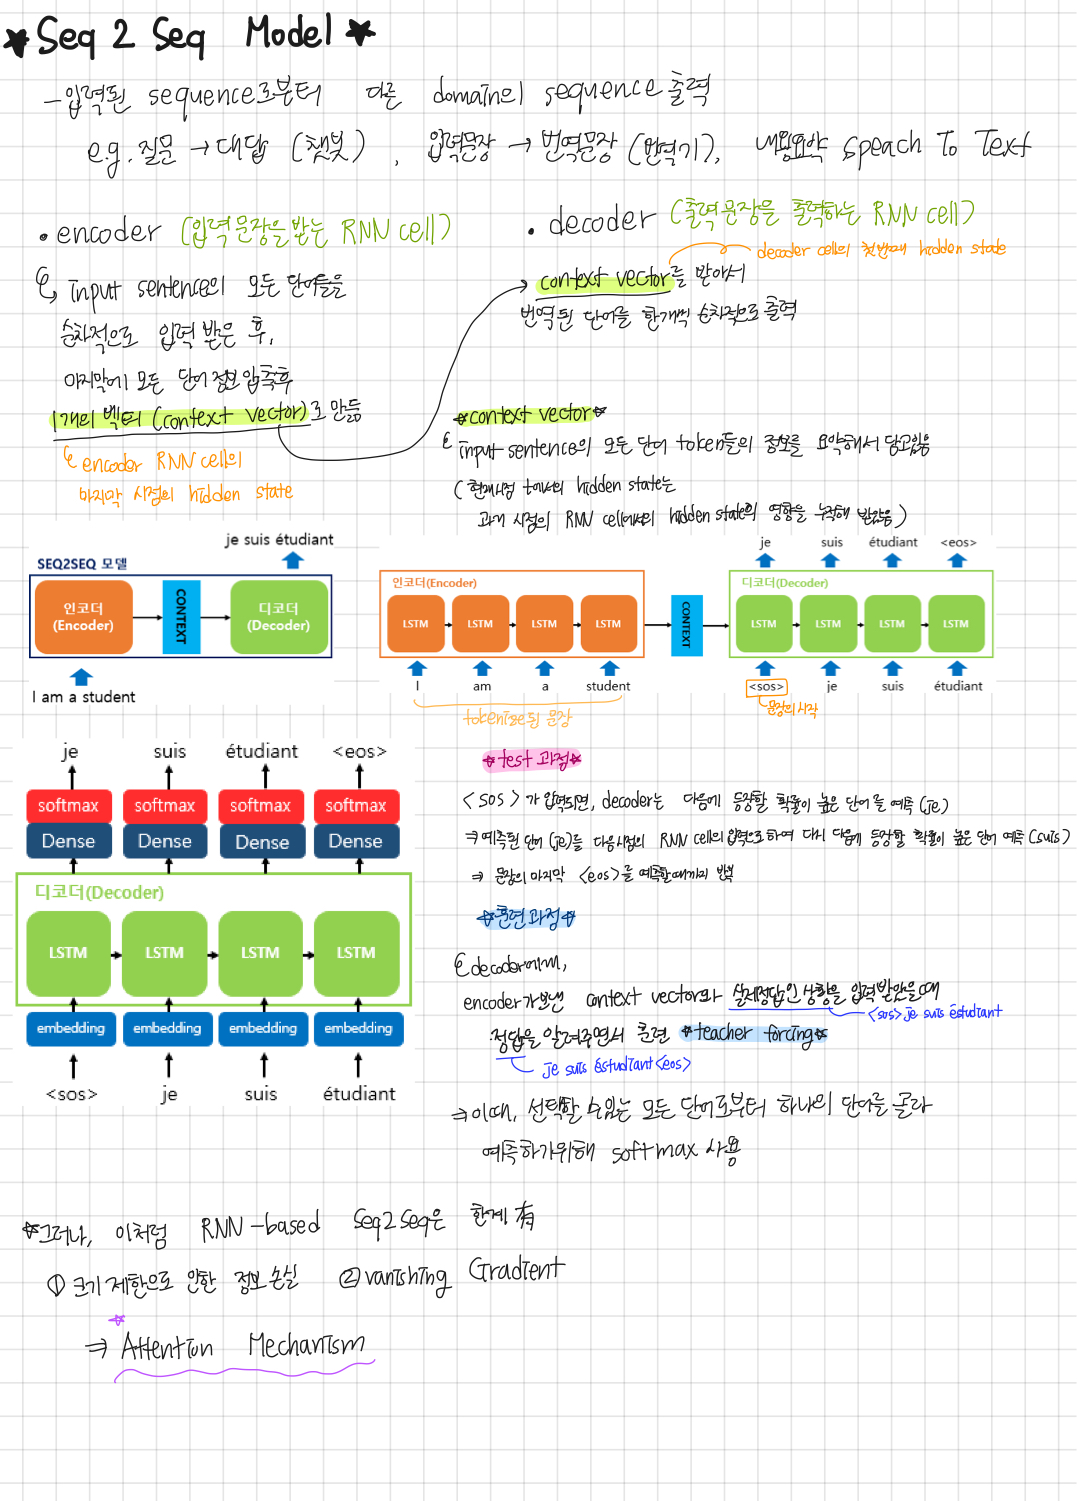 ★ Seq 2 Seq Model ★
- 입력된 sequence로부터 다른 domain의 sequence 출력
e.g. 질문 → 대답 (챗봇), 입력문장 → 번역문장 (번역기), 내용요약 speach To Text
• encoder (입력문장을 받는 RNN cell)
input sentence의 모든 단어들을
순차적으로 입력 받은 후,
마지막에 모든 단어 정보 압축후
1개의 벡터 (context vector)로 만듦
encoder RNN cell의
마지막 시점의 hidden state
• decoder (출력문장을 출력하는 RNN cell)
decoder cell의 첫번째 hidden state
context vector를 받아서
번역된 단어를 한개씩 순차적으로 출력
★context vector★
input sentence의 모든 단어 token들의 정보를 요약해서 담고있음
(현재시점 t에서의 hidden state는
과거 시점의 RNN cell에서의 hidden state의 영향을 누적해 받았음)
je suis étudiant
SEQ2SEQ 모델
인코더
(Encoder)
CONTEXT
디코더
(Decoder)
I am a student
je suis étudiant <eos>
인코더(Encoder)
디코더(Decoder)
LSTM LSTM LSTM LSTM
CONTEXT
LSTM LSTM LSTM LSTM
I am a student
<sos> je suis étudiant
tokenize된 문장
문장의 시작
je suis étudiant <eos>
softmax softmax softmax softmax
Dense Dense Dense Dense
디코더(Decoder)
LSTM LSTM LSTM LSTM
embedding embedding embedding embedding
<sos> je suis étudiant
★test 과정★
<sos>가 입력되면, decoder는 다음에 등장할 확률이 높은 단어를 예측 (je)
⇒ 예측된 단어 (je)를 다음시점의 RNN cell의 입력으로하여 다시 다음에 등장할 확률이 높은 단어 예측 (suis)
⇒ 문장의 마지막 <eos>를 예측할때까지 반복
★훈련과정★
decoder에게,
encoder가 보낸 context vector와 실제정답인 상황을 입력받았을때
<sos> je suis éstudiant
정답을 알려주면서 훈련 ★teacher forcing★
je suis éstudiant <eos>
⇒ 이때, 선택할 수있는 모든 단어로부터 하나의 단어를 골라
예측하기위해 softmax 사용
★그러나, 이처럼 RNN-based Seq2Seq은 한계 有
① 크기 제한으로 인한 정보 손실 ② vanishing Gradient
★
⇒ Attention Mechanism